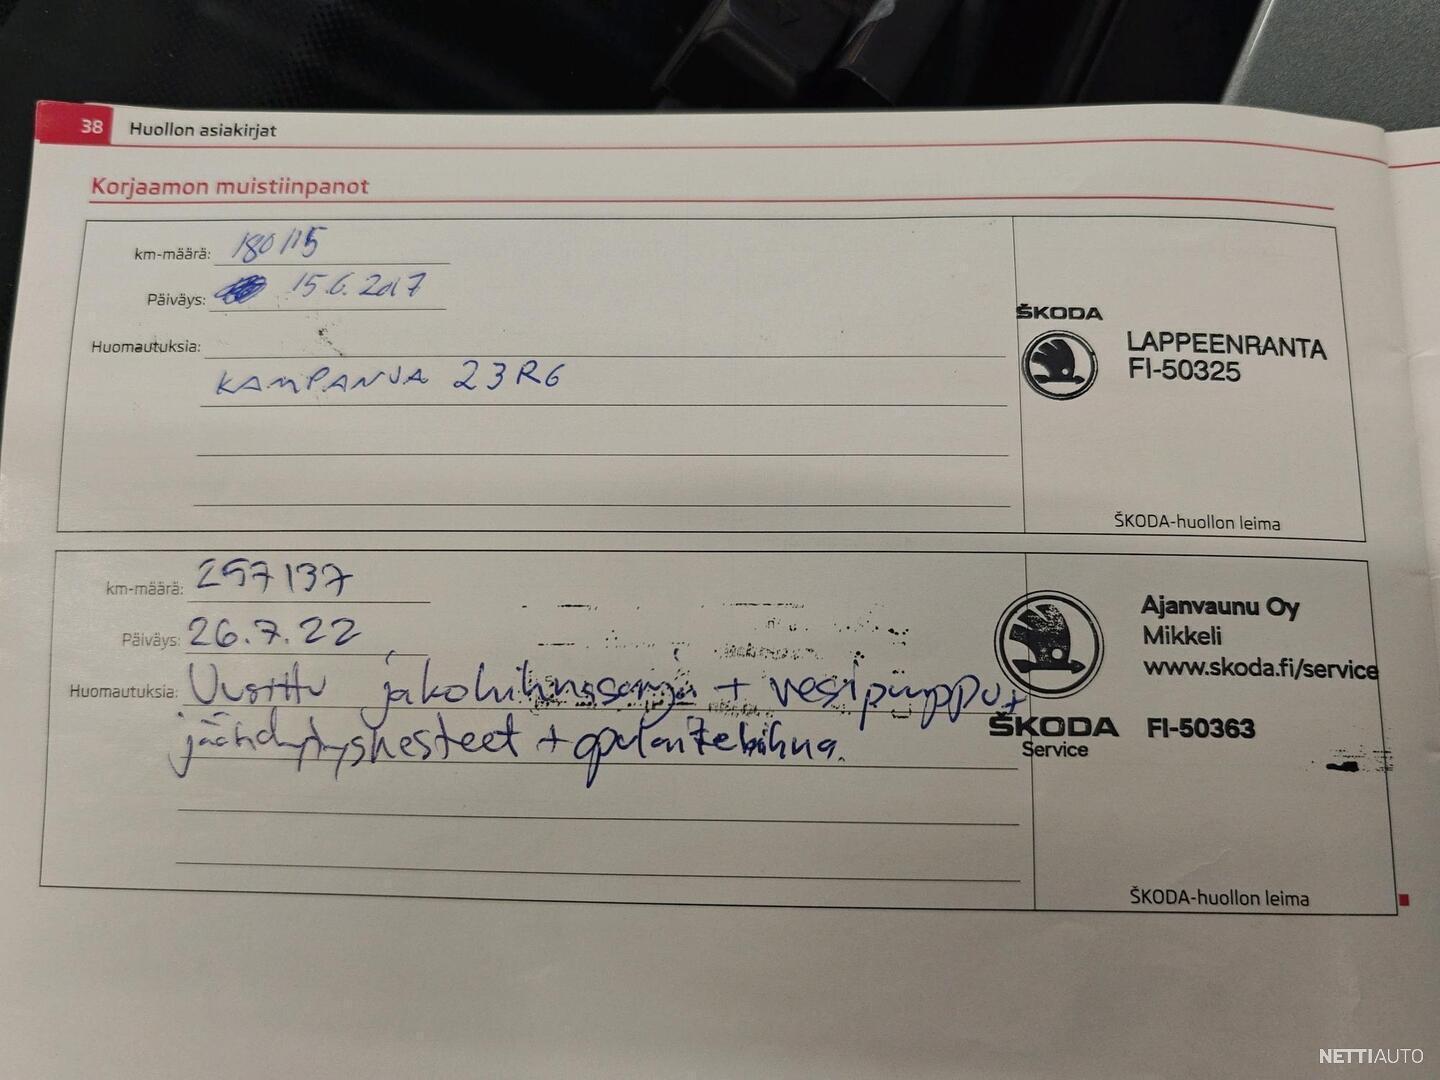 38 Huollon asiakirjat
Korjaamon muistiinpanot
km-määrä: 180115
Päiväys: 15.6.2017
Huomautuksia:
KAMPANJA 23R6
ŠKODA
LAPPEENRANTA
FI-50325
ŠKODA-huollon leima
km-määrä: 257137
Päiväys: 26.7.22
Huomautuksia: Uusittu jakohihnasarja + vesipumppu +
jäähdytysnesteet + apulaitehihna.
Ajanvaunu Oy
Mikkeli
www.skoda.fi/service
ŠKODA
Service
FI-50363
ŠKODA-huollon leima
NETTIAUTO